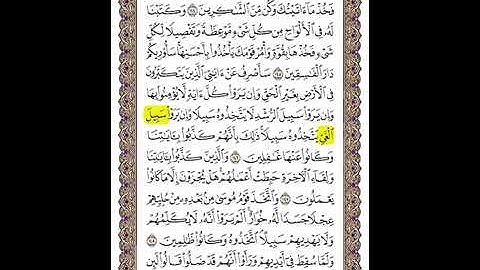 فَخُذْ مَآ ءَاتَيْتُكَ وَكُن مِّنَ ٱلشَّـٰكِرِينَ ١٤٤ وَكَتَبْنَا
لَهُۥ فِى ٱلْأَلْوَاحِ مِن كُلِّ شَىْءٍ مَّوْعِظَةً وَتَفْصِيلًا لِّكُلِّ
شَىْءٍ فَخُذْهَا بِقُوَّةٍ وَأْمُرْ قَوْمَكَ يَأْخُذُوا۟ بِأَحْسَنِهَا سَأُو۟رِيكُمْ
دَارَ ٱلْفَـٰسِقِينَ ١٤٥ سَأَصْرِفُ عَنْ ءَايَـٰتِىَ ٱلَّذِينَ يَتَكَبَّرُونَ
فِى ٱلْأَرْضِ بِغَيْرِ ٱلْحَقِّ وَإِن يَرَوْا۟ كُلَّ ءَايَةٍ لَّا يُؤْمِنُوا۟ بِهَا
وَإِن يَرَوْا۟ سَبِيلَ ٱلرُّشْدِ لَا يَتَّخِذُوهُ سَبِيلًا وَإِن يَرَوْا۟ سَبِيلَ
ٱلْغَىِّ يَتَّخِذُوهُ سَبِيلًا ذَٰلِكَ بِأَنَّهُمْ كَذَّبُوا۟ بِـَٔايَـٰتِنَا
وَكَانُوا۟ عَنْهَا غَـٰفِلِينَ ١٤٦ وَٱلَّذِينَ كَذَّبُوا۟ بِـَٔايَـٰتِنَا
وَلِقَآءِ ٱلْـَٔاخِرَةِ حَبِطَتْ أَعْمَـٰلُهُمْ هَلْ يُجْزَوْنَ إِلَّا مَا كَانُوا۟
يَعْمَلُونَ ١٤٧ وَٱتَّخَذَ قَوْمُ مُوسَىٰ مِنۢ بَعْدِهِۦ مِنْ حُلِيِّهِمْ
عِجْلًا جَسَدًا لَّهُۥ خُوَارٌ أَلَمْ يَرَوْا۟ أَنَّهُۥ لَا يُكَلِّمُهُمْ
وَلَا يَهْدِيهِمْ سَبِيلًا ٱتَّخَذُوهُ وَكَانُوا۟ ظَـٰلِمِينَ ١٤٨
وَلَمَّا سُقِطَ فِىٓ أَيْدِيهِمْ وَرَأَوْا۟ أَنَّهُمْ قَدْ ضَلُّوا۟ قَالُوا۟ لَئِن